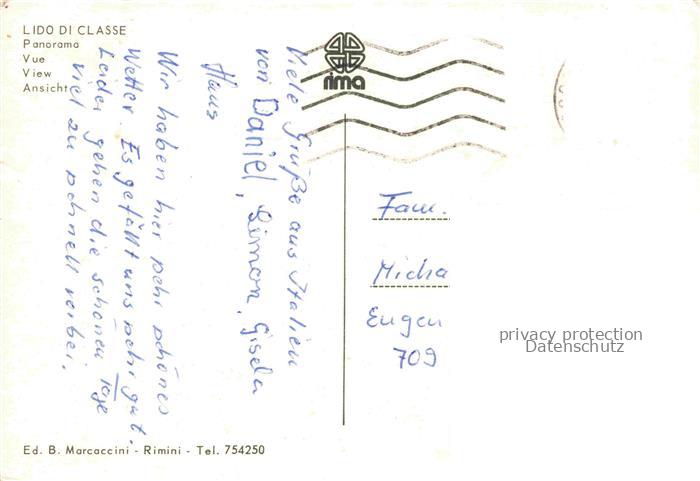 LIDO DI CLASSE
Panorama
Vue
View
Ansicht
rima
Viele Grüße aus Italien
von Daniel, Simon, Gisela
Haus
Wir haben hier sehr schönes
Wetter. Es gefällt uns sehr gut.
Leider gehen die schönen Tage
viel zu schnell vorbei.
Fam.
Micha
Eugen
709
privacy protection
Datenschutz
Ed. B. Marcaccini - Rimini - Tel. 754250